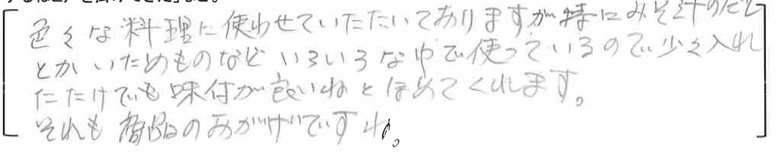 色々な料理に使わせていただいておりますが特にみそ汁のだし
とかいためものなどいろいろな中で使っているので少々入れ
ただけでも味付が良いねとほめてくれます。
それも商品のおかげですね。